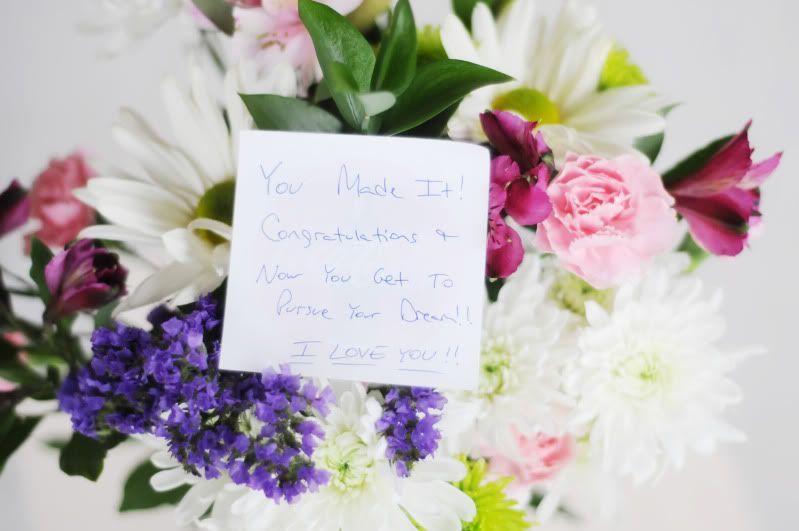 You Made It!
Congratulations &
Now You Get To
Pursue Your Dream!!
I LOVE YOU!!